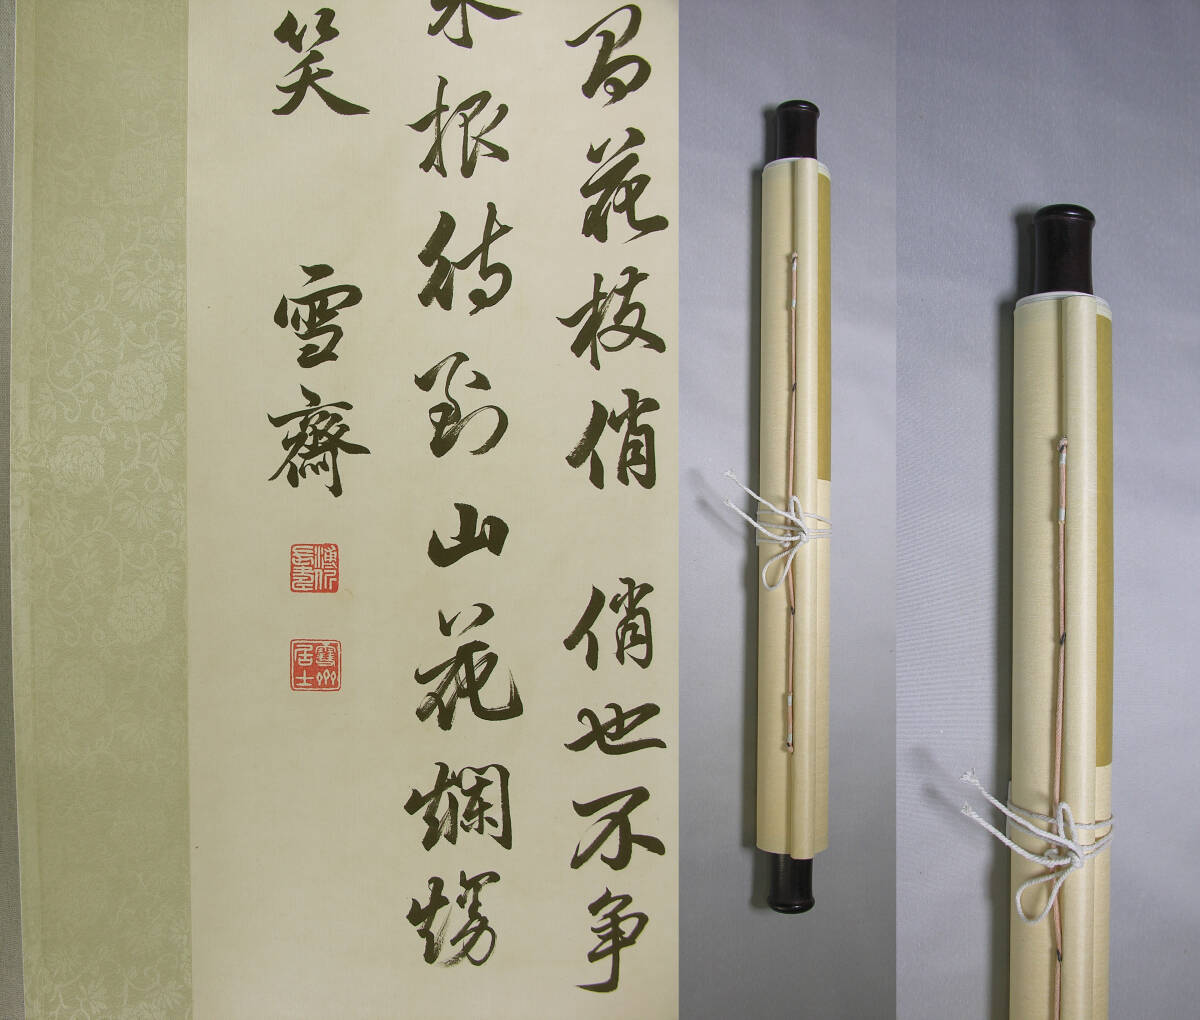 有花枝俏 俏也不争
来报待到山花爛熳
笑 雪齋
雪州居士